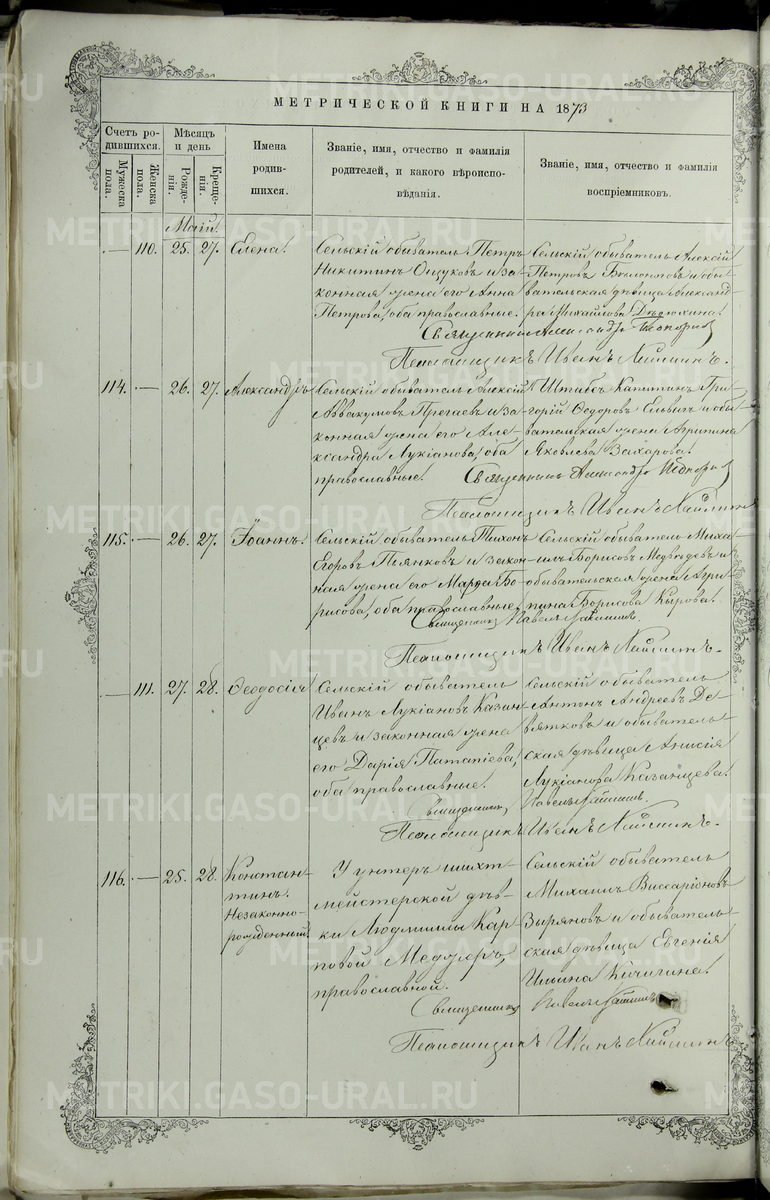 МЕТРИЧЕСКОЙ КНИГИ НА 1873
Счетъ ро-
дившихся.
Мужеска
пола.
Женска
пола.
Мѣсяцъ
и день
Рожде-
нія.
Креще-
нія.
Имена
родив-
шихся.
Званіе, имя, отчество и фамилія
родителей, и какого вѣроиспо-
вѣданія.
Званіе, имя, отчество и фамилія
воспріемниковъ.
Май.
— 110. 25. 27. Елена.
Сельскій обыватель Петръ
Никитинъ и за-
конная жена его Анна
Петрова, оба православные.
Сельскій обыватель Алексій
Петровъ и обы-
вательская дѣвица Александ-
ра Михайлова Дѣдюхина.
Священникъ Александръ
Псаломщикъ Иванъ
114. — 26. 27. Александръ
Сельскій обыватель Алексій
Аввакумовъ и за-
конная жена его Але-
ксандра Лукіанова, оба
православные.
Штабсъ Капитанъ Гри-
горій Ѳедоровъ и обы-
вательская жена Агрипина
Яковлева Захарова.
Священникъ Александръ
Псаломщикъ Иванъ
115. — 26. 27. Іоаннъ.
Сельскій обыватель Тихонъ
Егоровъ Пьянковъ и закон-
ная жена его Марѳа Бо-
рисова, оба православные.
Сельскій обыватель Миха-
илъ Борисовъ Медвѣдевъ и
обывательская жена Агри-
пина Борисова Кырова.
Священникъ Павелъ
Псаломщикъ Иванъ
— 111. 27. 28. Ѳеодосія
Сельскій обыватель
Иванъ Лукіановъ Казан-
цевъ и законная жена
его Дарія Патапіева,
оба православные.
Сельскій обыватель
Антонъ Андреевъ Де-
вятковъ и обыватель-
ская дѣвица Анисія
Лукіанова Казанцева.
Священникъ Павелъ
Псаломщикъ Иванъ
116. — 25. 28. Констан-
тинъ.
Незаконно-
рожденный.
У унтеръ шихт-
мейстерской дѣв-
ки Людмилы Кар-
повой
православной.
Сельскій обыватель
Михаилъ Виссаріоновъ
Зыряновъ и обыватель-
ская дѣвица Евгенія
Ильина Кичигина.
Священникъ Павелъ
Псаломщикъ Иванъ
METRIKI.GASO-URAL.RU